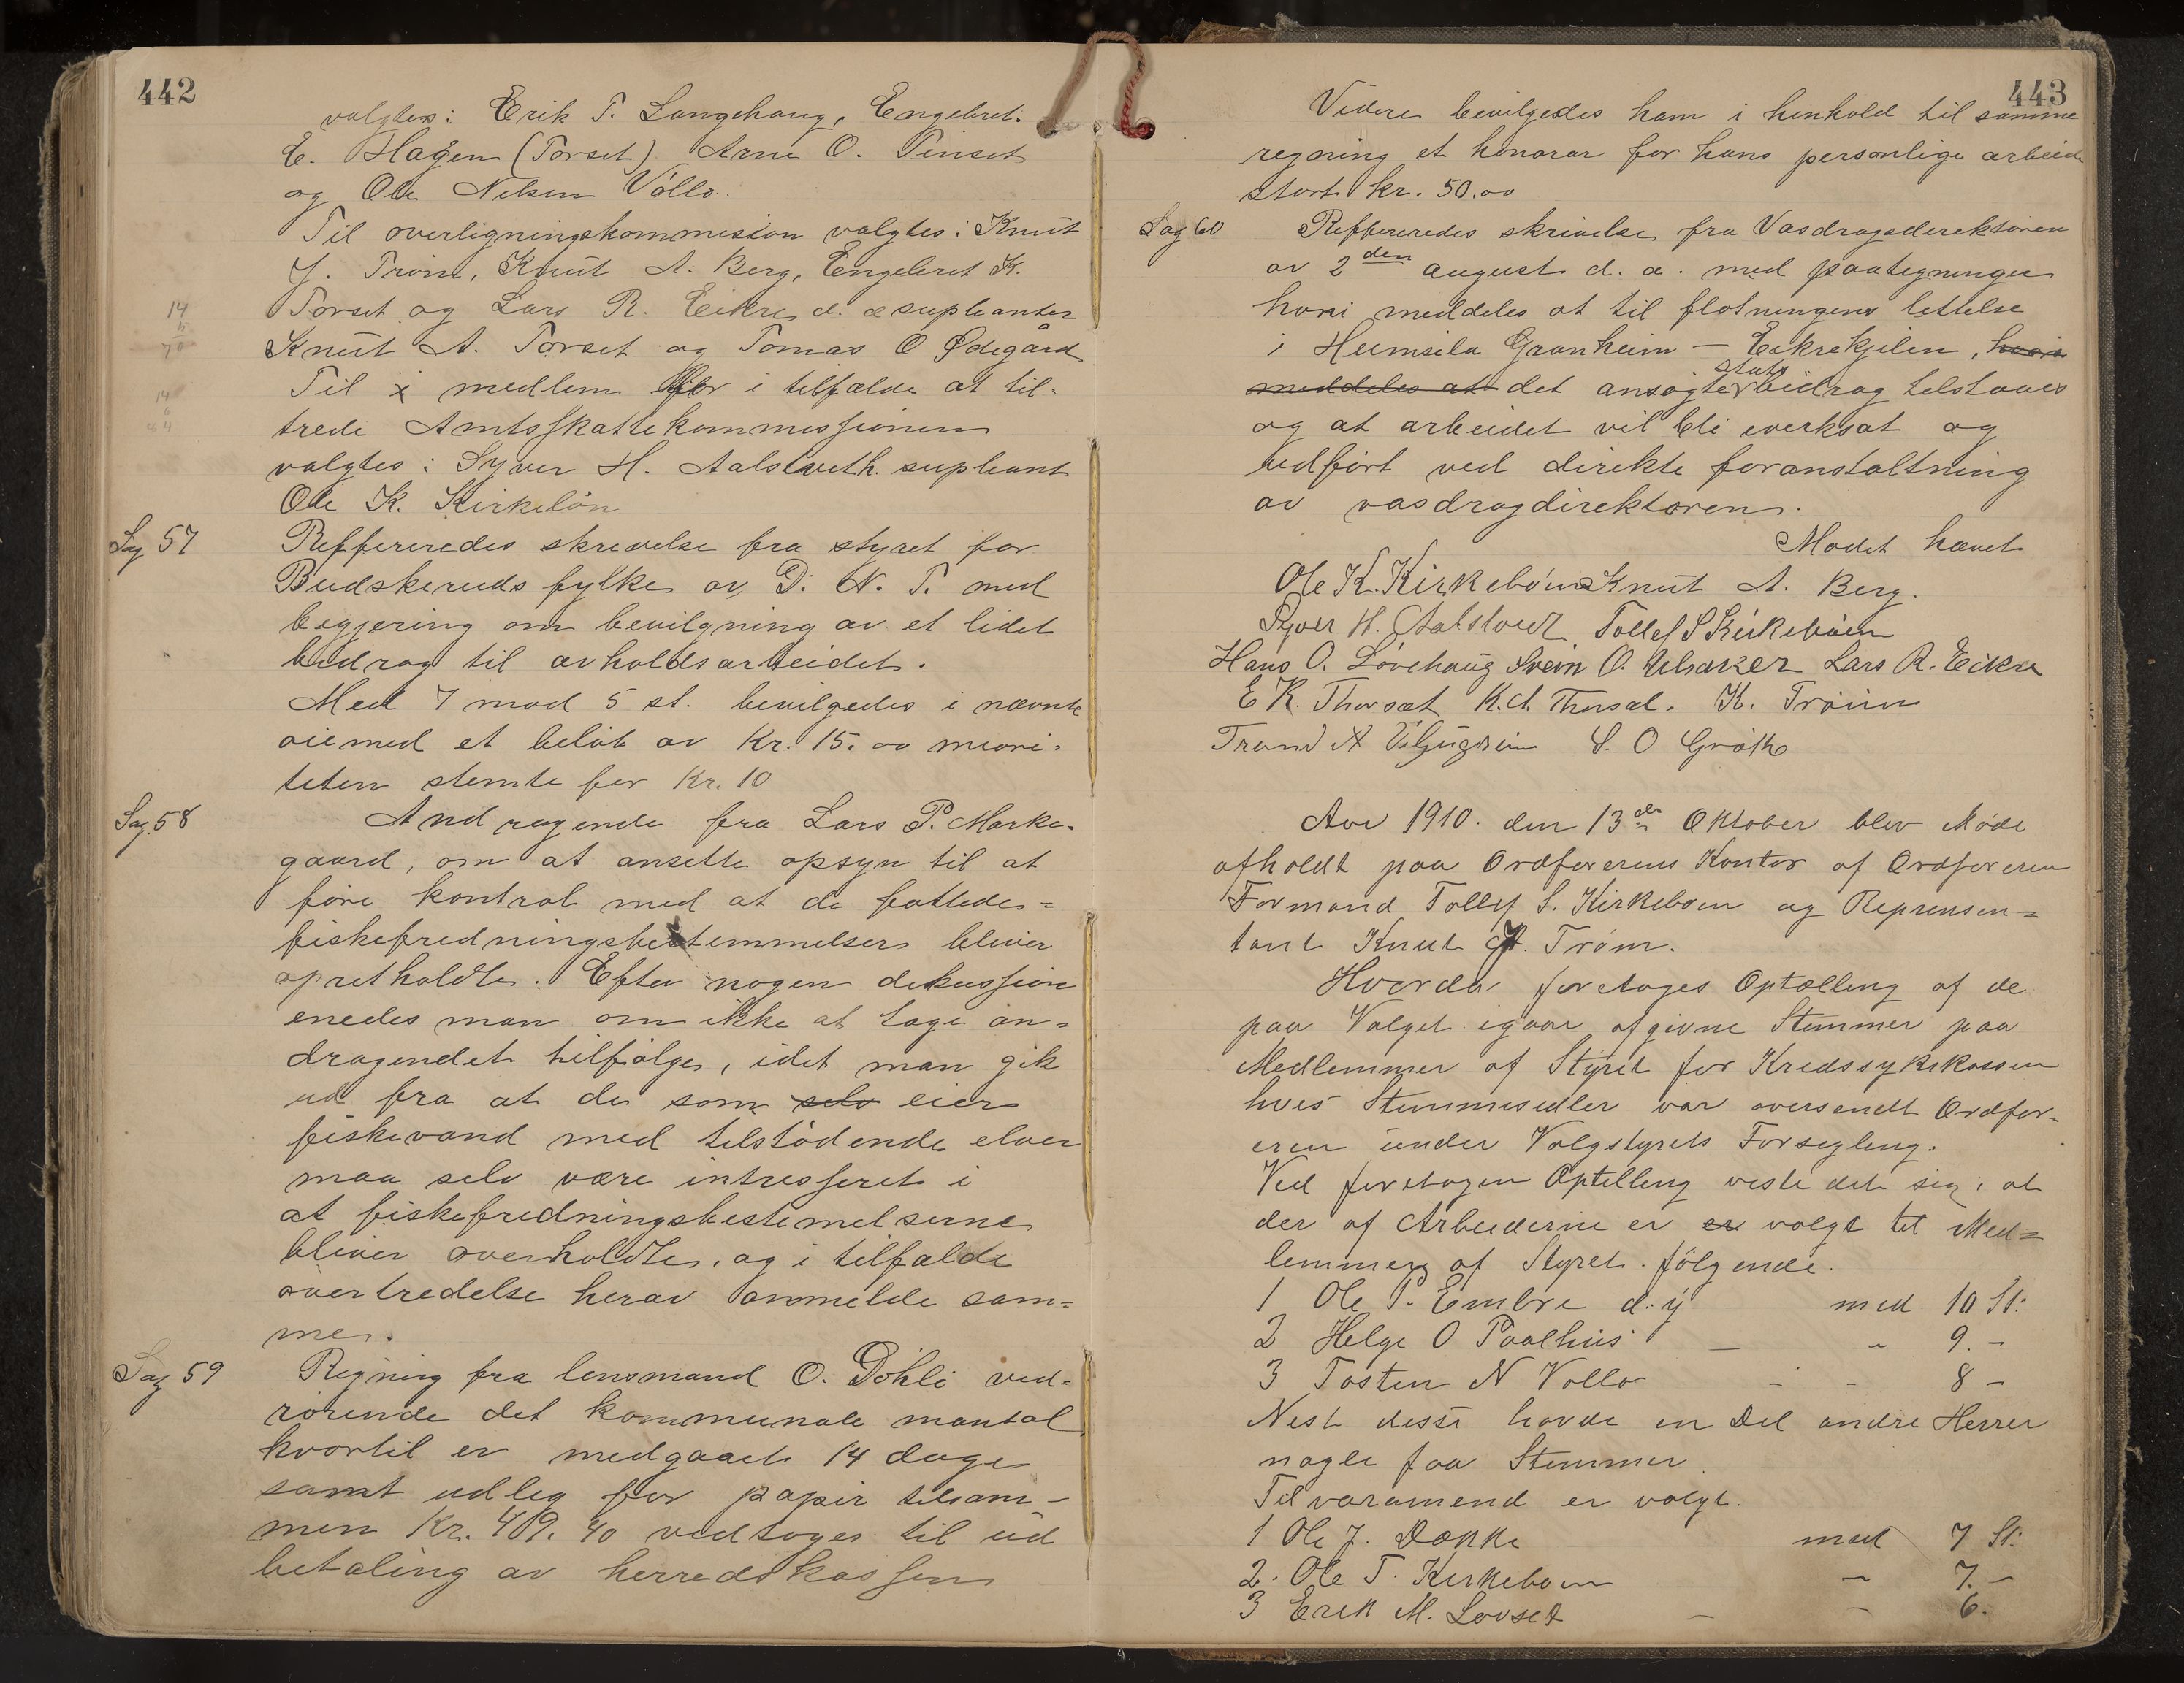 442
valgtes: Erik T. Langehaug, Engebret.
E. Hagen (Torset) Arne O. Tinset
og Ole Nelsen Vøllo.
Til overligningskommission valgtes: Knut
J. Trøim, Knut A. Berg, Engebret K.
Torset og Lars R. Eikre d. æ supleanter
Knut A. Torset og Tomas O Ødegård
Til medlem for i tilfælde at til-
trede Amtsskattekommissionen
valgtes: Syver H. Aalstveth. supleant
Ole K. Kirkebøn
Sag 57 Reffereredes skrivelse fra styret for
Budskeruds fylke av D. N. T. med
begjering om bevilgning av et lidet
bidrag til avholdsarbeidet.
Med 7 mod 5 st. bevilgedes i nævnte
øiemed et beløb av Kr. 15.00 miori-
teten stemte for Kr. 10
Sag 58 Andragende fra Lars P. Marke-
gaard, om at ansette opsyn til at
føre kontrol med at de fattedes=
fiskefredningsbestemmelser bliver
opretholdte. Efter nogen diskussion
enedes man om ikke at tage an=
dragendet tilfølge, idet man gik
ud fra at de som selv eier
fiskevand med tilstødende elver
maa selv være intresseret i
at fiskefredningsbestemelserne
bliver overholdte, og i tilfælde
overtredelse herav anmelde sam=
me.
Sag 59 Regning fra lensmand O. Døhli ved-
rørende det kommunale mantal
hvortil er medgaaet 14 dage
samt udleg for papir tilsam-
men Kr. 409.40 vedtoges til ud
betaling av herredskassen
443
Videre bevilgedes ham i henhold til samme
regning et honorar for hans personlige arbeide
stort kr. 50.00
Sag 60 Reffereredes skrivelse fra Vasdragsderektøren
av 2den august d. a. med paategninger
hvori meddeles at til fløtningens lettelse
i Heimsila Granheim - Eikrekjilen, hvori
meddeles at det ansøgte stats bidrag tilstaaes
og at arbeidet vil bli iverksat og
udført ved direkte foranstaltning
av vasdragdirektøren.
Mødet hævet
Ole K. Kirkebøen Knut A. Berg.
Syver H. Aalstveit Tollef S Kirkebøen
Hans O. Løvehaug Svein O. Ulsaker Lars R. Eikre
E K. Thorset K. A. Thorset. K. Trøim
Trond A S. O Grøth
Aar 1910. den 13de Oktober blev Møde
afholdt paa Ordførerens Kontor af Ordføreren
Formand Tollef S. Kirkebøen og Reprensen=
tant Knut Trøim.
Hvorda foretoges Optælling af de
paa Valget igaar afgivne Stemmer paa
Medlemmer af Styret for Kredssykekassen
hves Stemmesedler var oversendt Ordfør-
eren under Valgstyrets Forsegling.
Ved foretagen Optelling viste det sig, at
der af Arbeiderne er er valgt til Med=
lemmer af Styret følgende.
1 Ole P. Embre d. y med 10 St:
2 Helge O Paalhus - " 9. -
3 Tosten N Vøllo - - 8 -
Nest disse havde en Del andre Herrer
nogle faa Stemmer
Til varamend er valgt.
1 Ole J. Døkke med 7 St:
2. Ole T. Kirkebøen - 7. -
3 Erik M. Løvset - - 6.